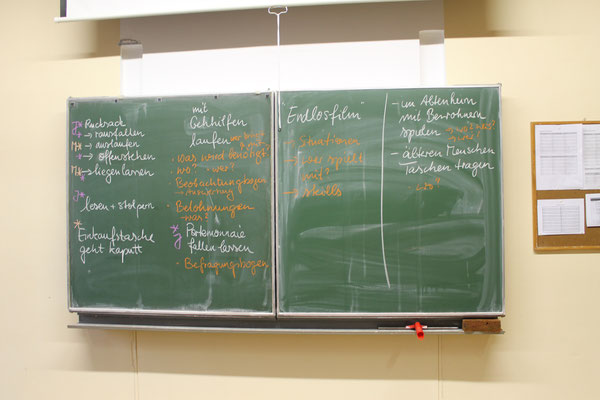 Rucksack
→ rausfallen
→ auslaufen
→ offenstehen
→ liegenlassen
lesen + stolpern
Einkaufstasche
geht kaputt
mit
Gehhilfen
laufen
• was wird benötigt
wo? • wer?
• Beobachtungbogen
→ Auswertung
• Belohnungen
→ was?
Portemonnaie
fallen lassen
• Befragungsbogen
"Endlosfilm"
→ Situationen
→ wer spielt
mit?
→ skills
- im Altenheim
mit Bewohnern
spielen
- älteren Menschen
Taschen tragen